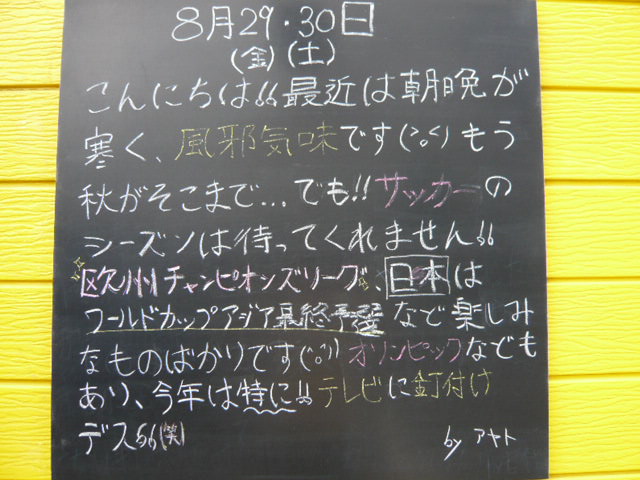 8月29・30日
(金)(土)
こんにちは!!最近は朝晩が
寒く、風邪気味です(>。<)もう
秋がそこまで…でも!!サッカーの
シーズンは待ってくれません!!
欧州チャンピオンズリーグ、日本は
ワールドカップアジア最終予選など楽しみ
なものばかりです(^o^)オリンピックなども
あり、今年は特に!!テレビに釘付け
デス!!(笑)
by アキト